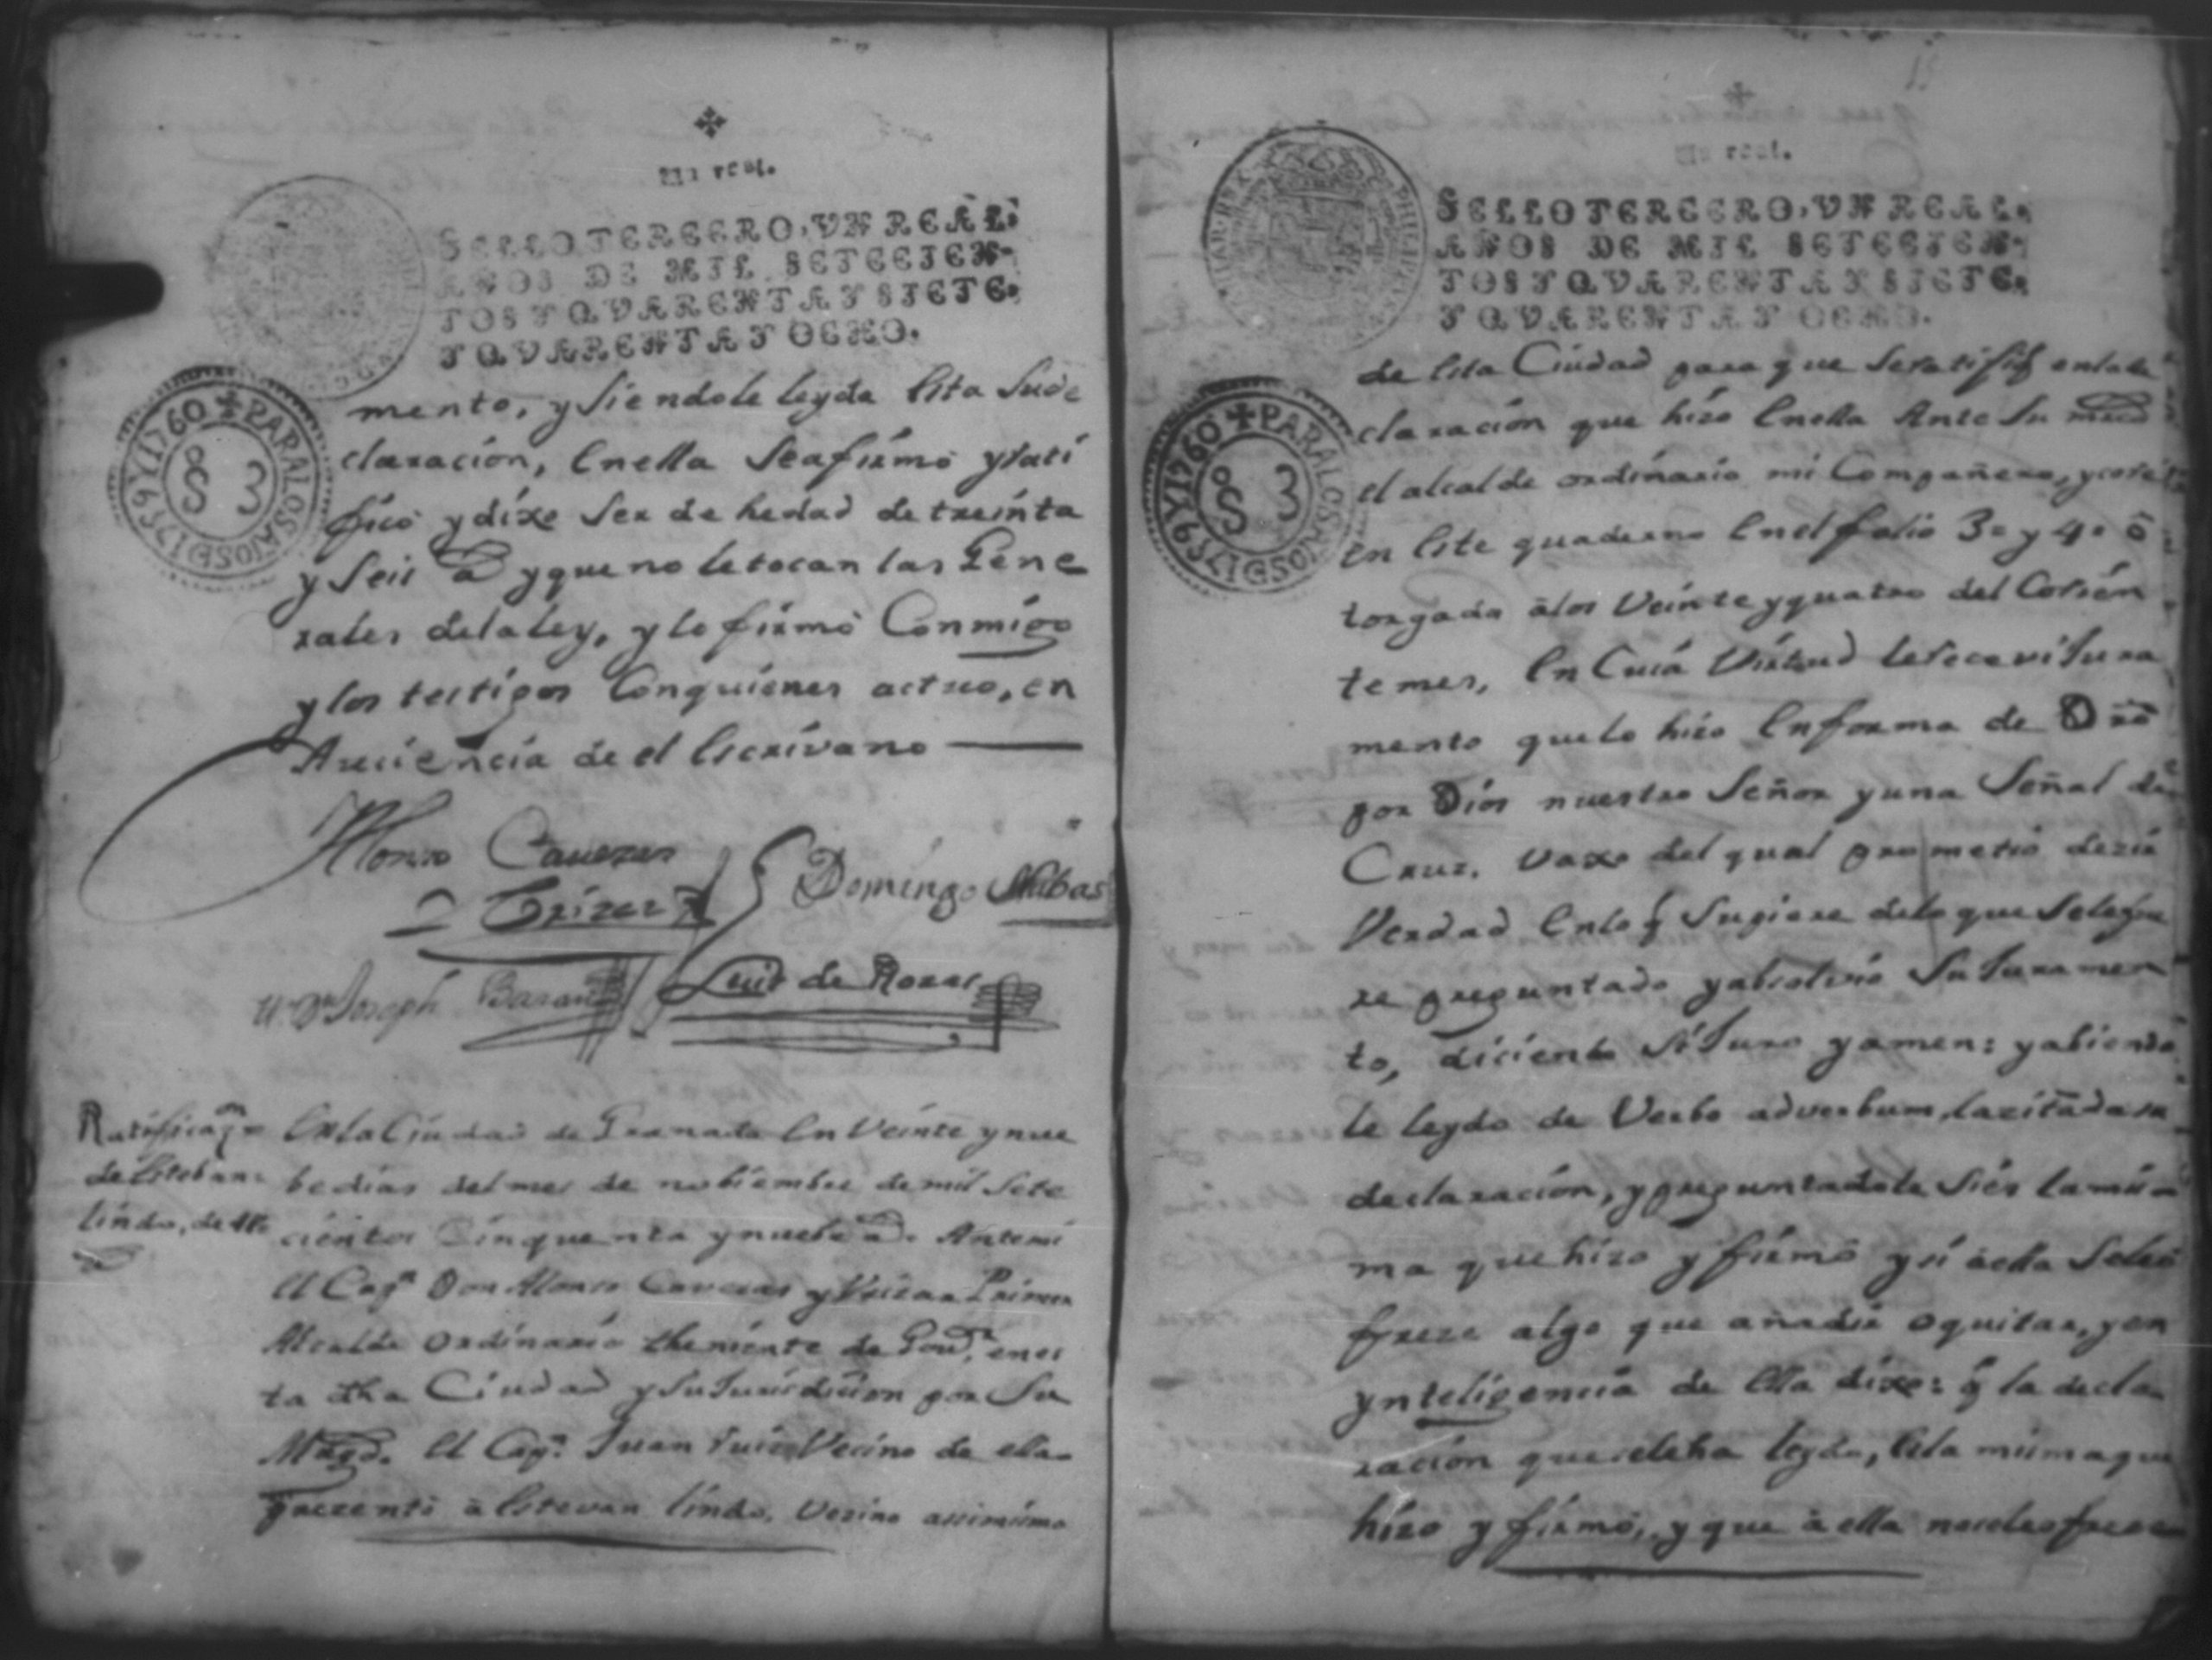 Un real.
SELLO TERCERO, VN REAL,
AÑOS DE MIL SETECIEN-
TOS Y QVARENTA Y SIETE,
Y QVARENTA Y OCHO.
PARA LOS AÑOS D 1759 Y 1760
S 3
mento, y siendole leyda esta su de
claracion, en ella se afirmó y rati
ficó y dixo ser de hedad de treinta
y seis a y que no le tocan las Gene
rales de la ley, y lo firmó Conmigo
y los testigos Con quienes actuo, en
Ausiencia de el Escrivano
Alonso Cavezas
Domingo
Joseph
Luis de Rozas
Ratificaon En la Ciudad de Granada En Veinte y nue
de Esteban be dias del mes de nobiembre de mil sete
lindo, de cientos Cinquenta y nuebe a. Ante mi
El Capn Don Alonso Cavezas y Primer
Alcalde ordinario theniente de Govr. en es
ta dha Ciudad y su Jurisdicion por Su
Magd. El Capn. Juan Ruiz Vecino de ella
prezentó à Estevan lindo, Vezino assimismo
Un real.
SELLO TERCERO, VN REAL,
AÑOS DE MIL SETECIEN-
TOS Y QVARENTA Y SIETE,
Y QVARENTA Y OCHO.
PARA LOS AÑOS D 1759 Y 1760
S 3
de esta Ciudad para que se ratifiq en la de
claracion que hizo En ella Ante Su mrd
el alcalde ordinario mi Compañero, y
en este quaderno En el folio 3º y 4º ô
torgada â los Veinte y quatro del Corien
te mes, En Cuia Virtud le recevi Jura
mento que lo hizo En forma de Dro
por Dios nuestro Señor y una Señal de
Cruz, vaxo del qual prometió dezir
Verdad En lo q Supiere de lo que se le fue
re preguntado y absolvio Su Juramen
to, diciendo si Juro y amen: y abiendo
le leydo de Verbo adverbum, la zitada su
declaracion, y preguntadole si es la mis
ma que hizo y firmó y si à ella se le o
freze algo que añadir o quitar, y en
ynteligencia de ella dixo: q la decla
racion que se le ha leydo, es la misma que
hizo y firmó, y que à ella no se le ofreze